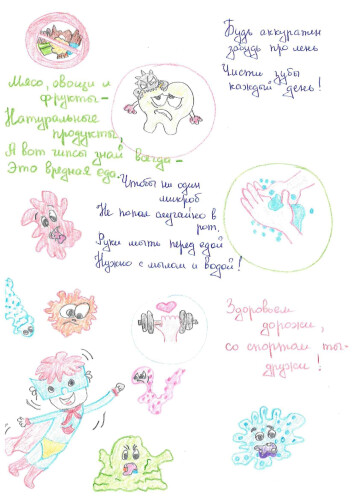 Будь аккуратен
забудь про лень
Чисти зубы
каждый день!
Мясо, овощи и
фрукты-
Натуральные
продукты,
А вот чипсы знай всегда-
Это вредная еда.
Чтобы ни один
микроб
Не попал случайно в
рот,
Руки мыть перед едой
Нужно с мылом и водой!
Здоровьем
дорожи,
со спортом ты-
дружи!